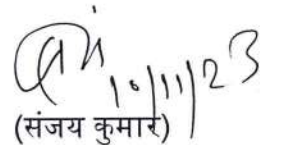 10/11/23
(संजय कुमार)